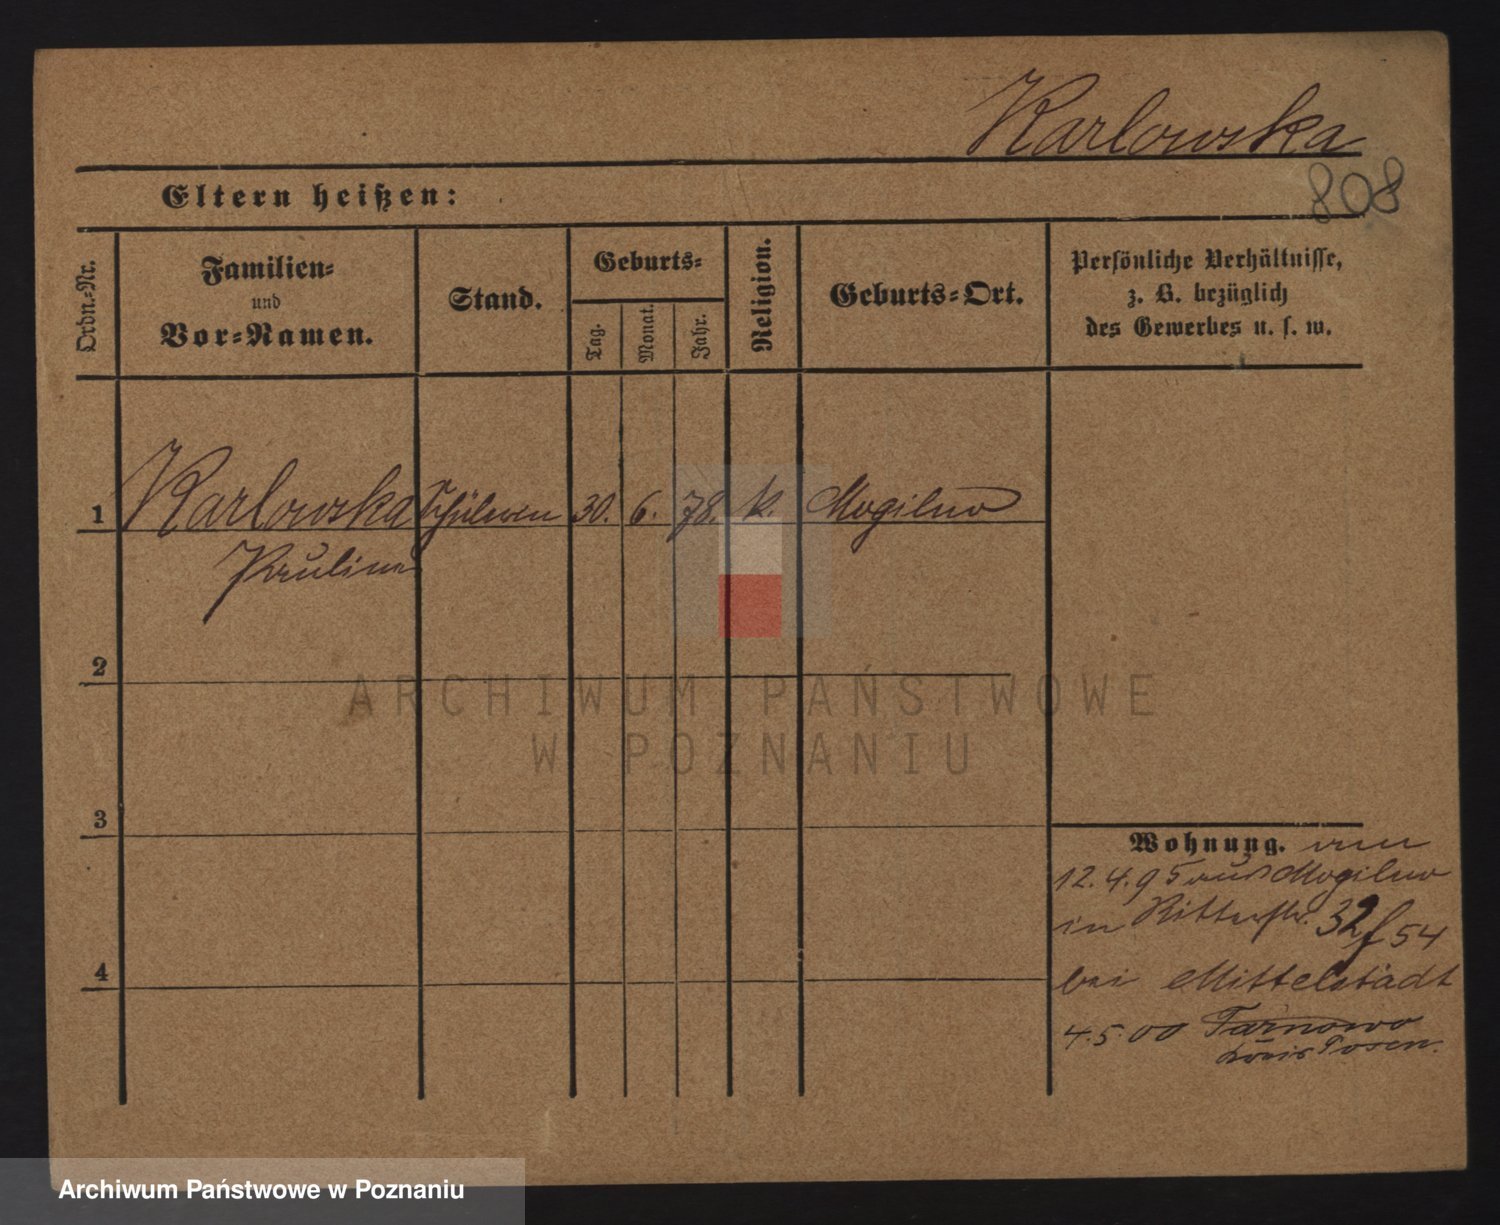 Karlowska
808
Eltern heißen:
Ordn.-Nr.
Familien-
und
Vor-Namen.
Stand.
Geburts-
Tag.
Monat.
Jahr.
Religion.
Geburts-Ort.
Persönliche Verhältnisse,
z. B. bezüglich
des Gewerbes u. s. w.
1 Karlowska Schülerin 30. 6. 78. k. Mogilno
Pauline
2
3
4
Wohnung.
12.4.95 aus Mogilno
in Ritterstr. 32 f 54
bei Mittelstädt
4.5.00 Tarnowo
Kreis Posen.
ARCHIWUM PAŃSTWOWE
W POZNANIU
Archiwum Państwowe w Poznaniu